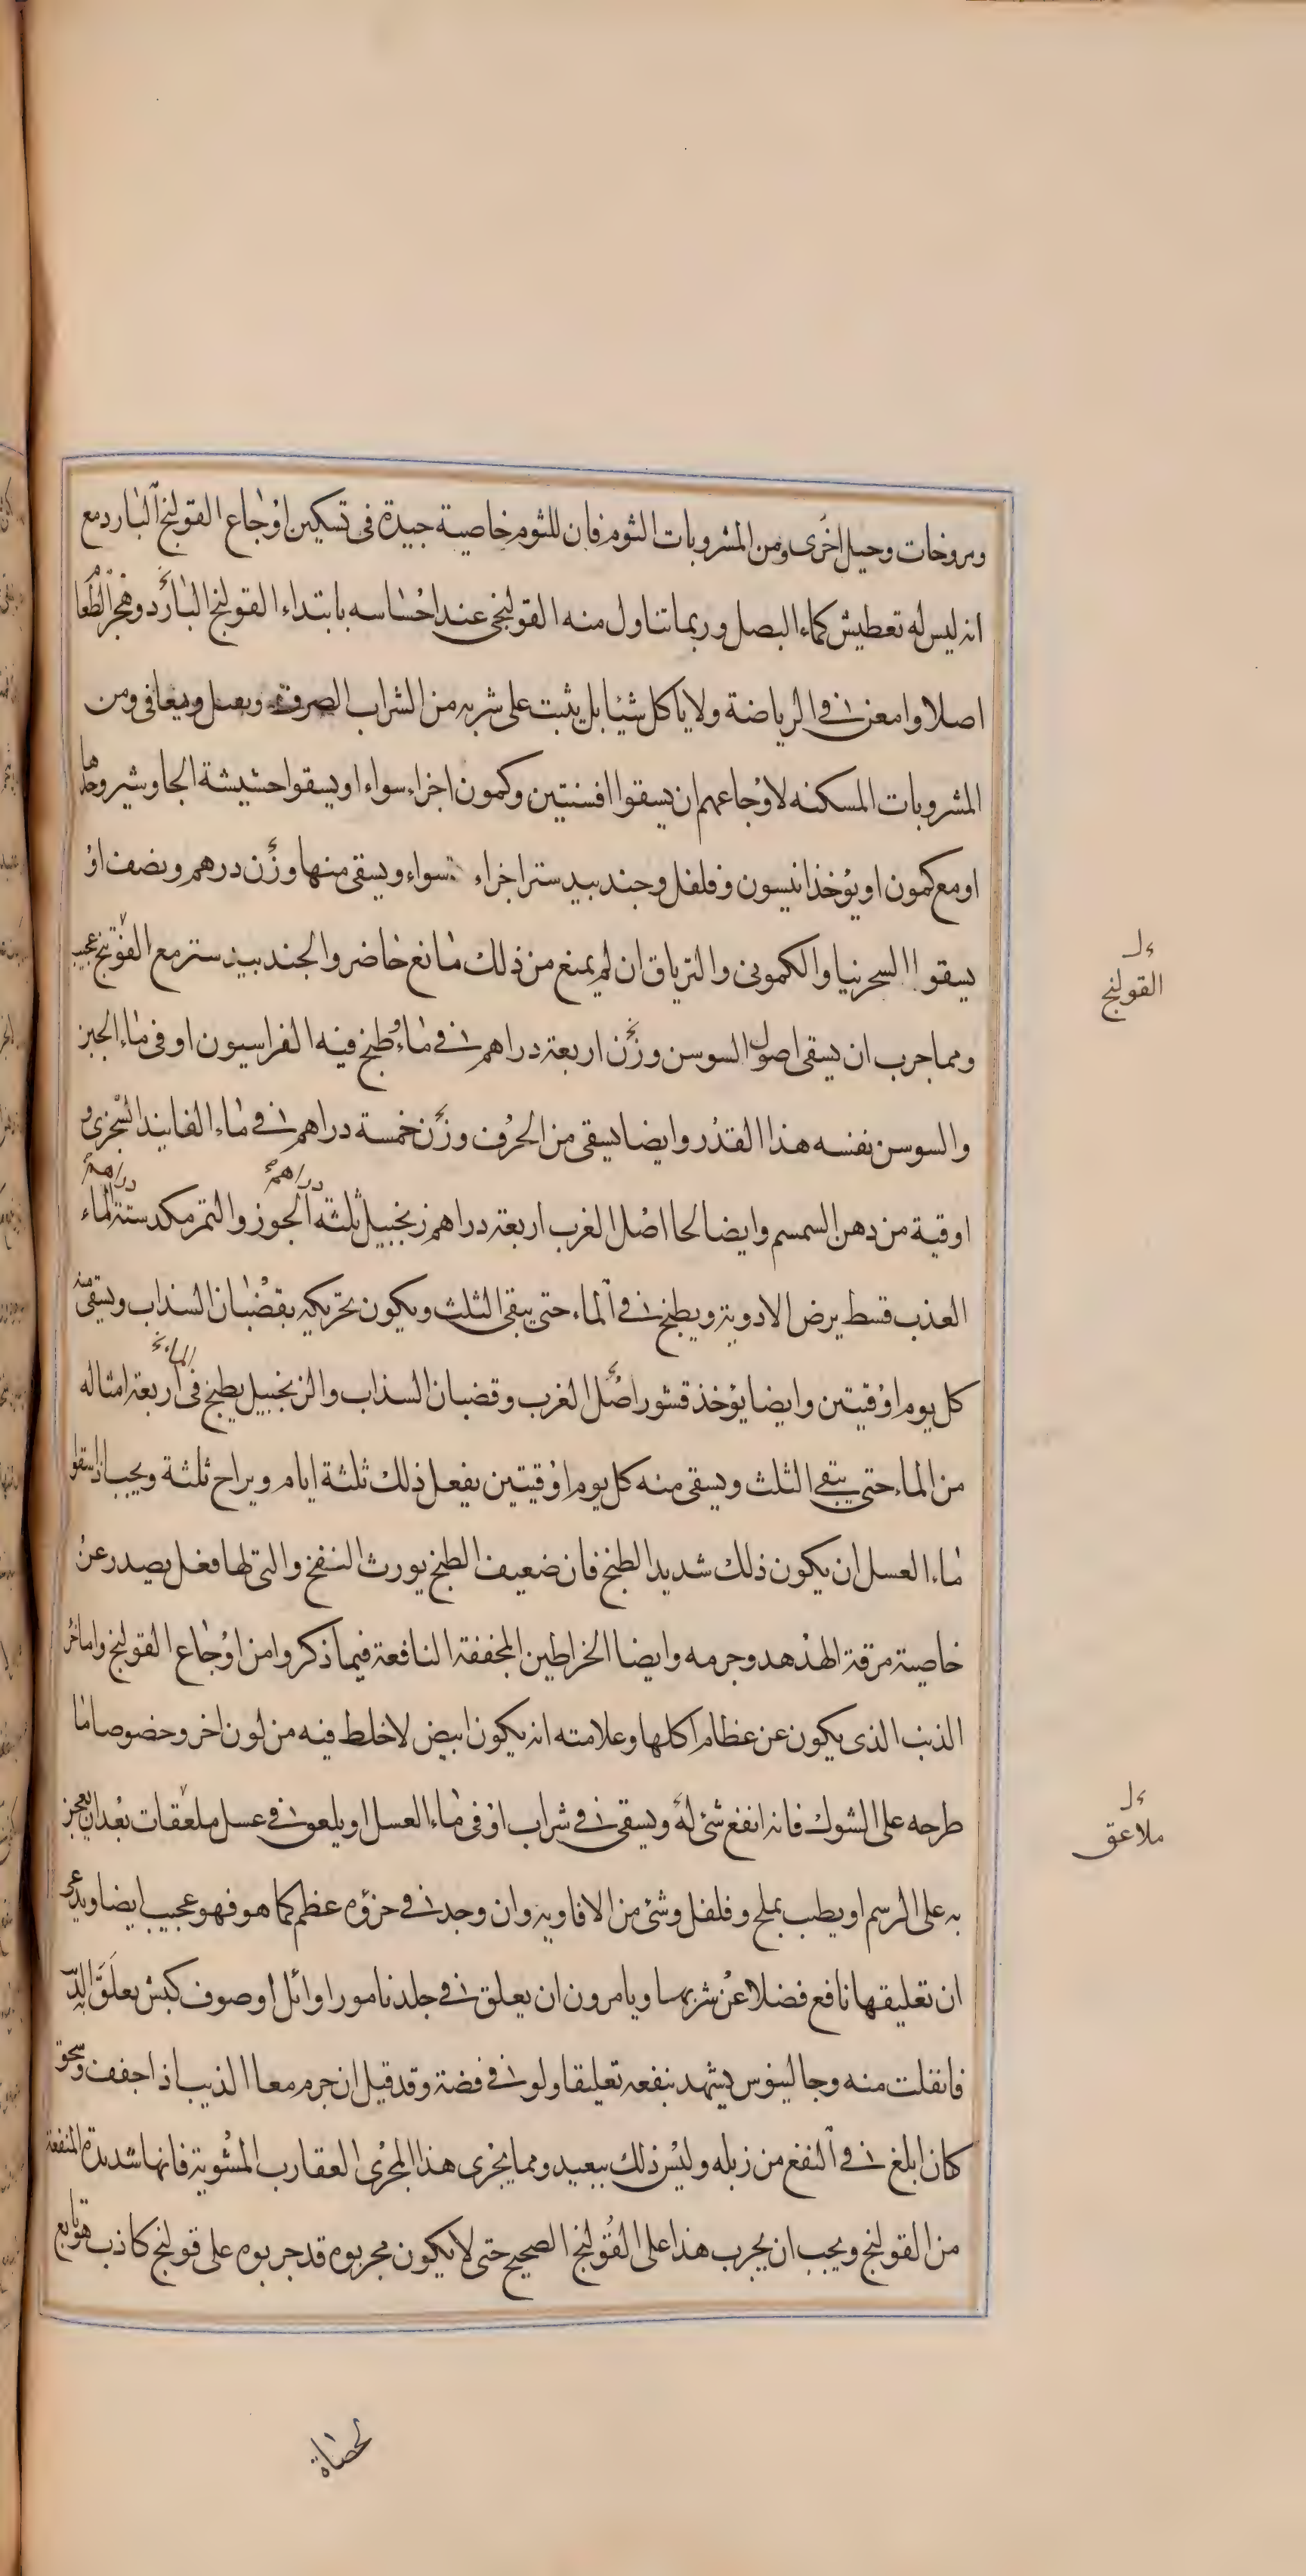 ومروخات وحيل اخرى ومن المشروبات الثوم فان للثوم خاصية جيدة فى تسكين اوجاع القولنج البارد مع
انه ليس له تعطيش كماء البصل وربما تناول منه القولنجى عند احساسه بابتداء القولنج البارد وهجر الطعام
اصلا وامعن فى الرياضة ولا ياكل شيئا بل يثبت على شربه من الشراب الصرف ويعافى ومن
المشروبات المسكنه لاوجاعهم ان يسقوا افسنتين وكمون اجزاء سواء او يسقوا حشيشة الجاوشير وحدها
او مع كمون او يؤخذ انيسون وفلفل وجندبيدستر اجزاء سواء ويسقى منها وزن درهم ونصف او
يسقوا السجرنيا والكمونى والترياق ان لم يمنع من ذلك مانع حاضر والجندبيدستر مع الفوتنج عجيب
القولنج
ومما جرب ان يسقى اصول السوسن وزن اربعة دراهم فى ماء طبخ فيه الفراسيون او فى ماء الجبن
والسوسن نفسه هذا القدر وايضا يسقى من الحرف وزن خمسة دراهم فى ماء الفانيد السجزى و
اوقية من دهن السمسم وايضا لحا اصل الغرب اربعة دراهم زنجبيل ثلثة دراهم الجوز والتمر مكد ستة دراهم الماء
العذب قسط يرض الادوية ويطبخ فى الماء حتى يبقى الثلث ويكون تحريكه بقضبان السذاب ويسقى منه
كل يوم اوقيتين وايضا يؤخذ قشور اصل الغرب وقضبان السذاب والزنجبيل يطبخ فى اربعة امثاله
من الماء حتى يبقى الثلث ويسقى منه كل يوم اوقيتين يفعل ذلك ثلثة ايام ويراح ثلثة ويجب اذا سقوا
ماء العسل ان يكون ذلك شديد الطبخ فان ضعيف الطبخ يورث النفخ والتى لها فعل يصدر عن
خاصية مرقة الهدهد وجرمه وايضا الخراطين المجففة النافعة فيما ذكروا من اوجاع القولنج واما خرء
الذئب الذى يكون عن عظام اكلها وعلامته انه يكون ابيض لا خلط فيه من لون اخر وخصوصا ما
طرحه على الشوك فانه انفع شئ له ويسقى فى شراب او فى ماء العسل او يلعق فى عسل ملعقات بعد ان يعجن
ملاعق
به على الرسم او يطيب بملح وفلفل وشئ من الافاويه وان وجد فى خرؤه عظم كما هو فهو عجيب ايضا ويدعى
ان تعليقها نافع فضلا عن شربها ويامرون ان يعلق فى جلد نامور او ائل او صوف كبش يعلق
فانفلت منه وجالينوس يشهد بنفعه تعليقا ولو فى فضة وقد قيل ان جرم معا الذئب اذا جفف وسحق
كان ابلغ فى النفع من زبله وليس ذلك ببعيد ومما يجرى هذا المجرى العقارب المشوية فانها شديدة المنفعة
من القولنج ويجب ان يجرب هذا على القولنج الصحيح حتى لا يكون مجربوه قد جربوه على قولنج كاذب هو تابع
لحصاة